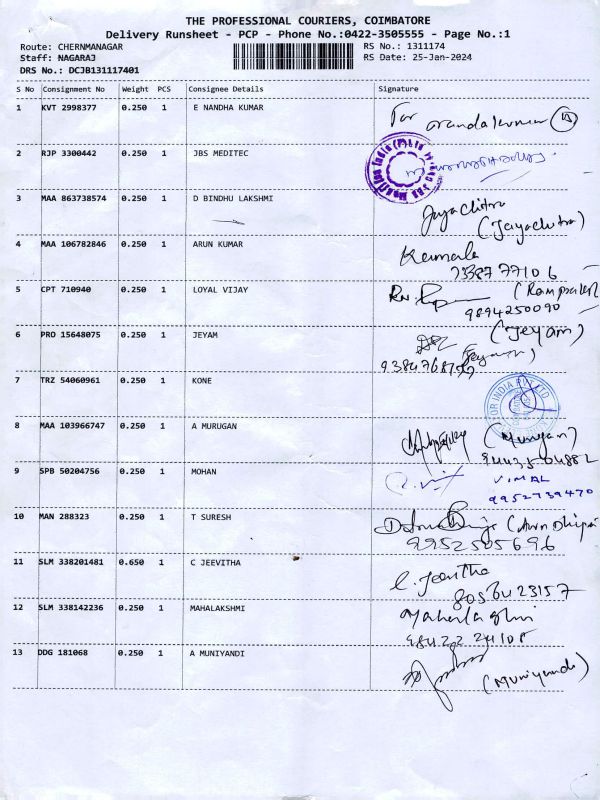 THE PROFESSIONAL COURIERS, COIMBATORE
Delivery Runsheet - PCP - Phone No.:0422-3505555 - Page No.:1
Route: CHERNMANAGAR RS No.: 1311174
Staff: NAGARAJ RS Date: 25-Jan-2024
DRS No.: DCJB131117401
S No Consignment No Weight PCS Consignee Details Signature
1 KVT 2998377 0.250 1 E NANDHA KUMAR For
2 RJP 3300442 0.250 1 JBS MEDITEC
3 MAA 863738574 0.250 1 D BINDHU LAKSHMI Jayachitra
(Jayachitra)
4 MAA 106782846 0.250 1 ARUN KUMAR Kamala
5 CPT 710940 0.250 1 LOYAL VIJAY
9894250090
6 PRO 15648075 0.250 1 JEYAM (Jeyam)
7 TRZ 54060961 0.250 1 KONE
8 MAA 103966747 0.250 1 A MURUGAN (Murugan)
9 SPB 50204756 0.250 1 MOHAN VIMAL
9952739470
10 MAN 288323 0.250 1 T SURESH
9952505696
11 SLM 338201481 0.650 1 C JEEVITHA C. Jeevitha
8056423157
12 SLM 338142236 0.250 1 MAHALAKSHMI Mahalakshmi
13 DDG 181068 0.250 1 A MUNIYANDI
(Muniyandi)